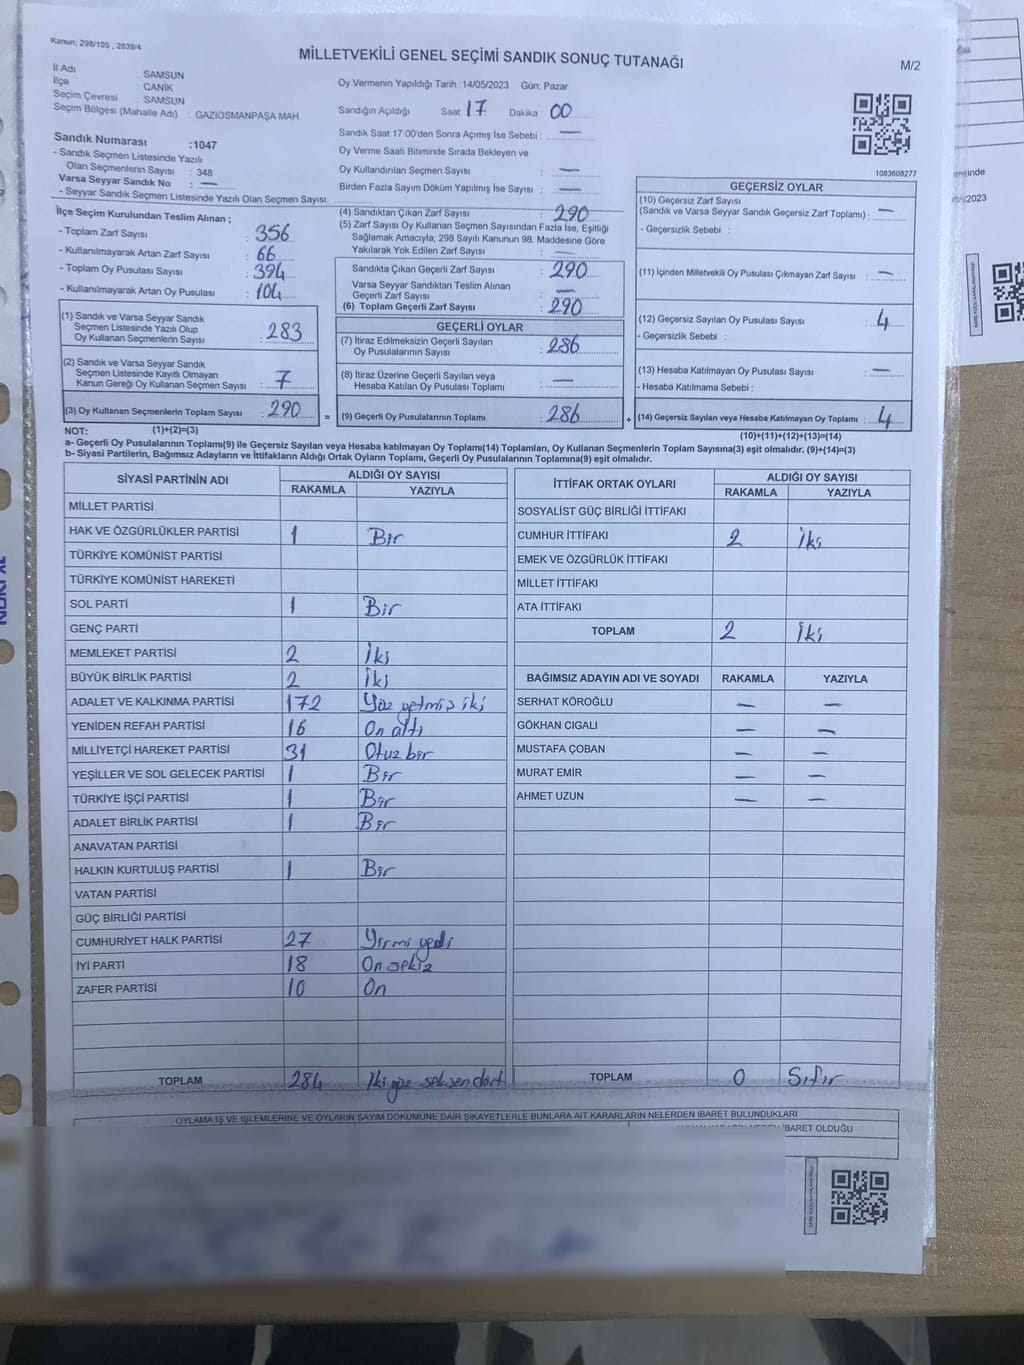 Kanun; 298/105 , 2839/4
MİLLETVEKİLİ GENEL SEÇİMİ SANDIK SONUÇ TUTANAĞI
M/2
İl Adı : SAMSUN
İlçe : CANİK
Seçim Çevresi : SAMSUN
Seçim Bölgesi (Mahalle Adı) : GAZİOSMANPAŞA MAH.
Oy Vermenin Yapıldığı Tarih : 14/05/2023 Gün: Pazar
Sandığın Açıldığı Saat : 17 Dakika : 00
Sandık Saat 17:00'den Sonra Açımış İse Sebebi : —
Oy Verme Saati Bitiminde Sırada Bekleyen ve
Oy Kullandırılan Seçmen Sayısı : —
Birden Fazla Sayım Döküm Yapılmış İse Sayısı : —
1083608277
Sandık Numarası :1047
- Sandık Seçmen Listesinde Yazılı
Olan Seçmenlerin Sayısı : 348
Varsa Seyyar Sandık No : —
- Seyyar Sandık Seçmen Listesinde Yazılı Olan Seçmen Sayısı:
İlçe Seçim Kurulundan Teslim Alınan ;
- Toplam Zarf Sayısı : 356
- Kullanılmayarak Artan Zarf Sayısı : 66
- Toplam Oy Pusulası Sayısı : 394
- Kullanılmayarak Artan Oy Pusulası : 104
(1) Sandık ve Varsa Seyyar Sandık
Seçmen Listesinde Yazılı Olup
Oy Kullanan Seçmenlerin Sayısı : 283
(2) Sandık ve Varsa Seyyar Sandık
Seçmen Listesinde Kayıtlı Olmayan
Kanun Gereği Oy Kullanan Seçmen Sayısı : 7
(3) Oy Kullanan Seçmenlerin Toplam Sayısı : 290
(1)+(2)=(3)
(4) Sandıktan Çıkan Zarf Sayısı : 290
(5) Zarf Sayısı Oy Kullanan Seçmen Sayısından Fazla İse, Eşitliği
Sağlamak Amacıyla; 298 Sayılı Kanunun 98. Maddesine Göre
Yakılarak Yok Edilen Zarf Sayısı : —
Sandıkta Çıkan Geçerli Zarf Sayısı : 290
Varsa Seyyar Sandıktan Teslim Alınan
Geçerli Zarf Sayısı : —
(6) Toplam Geçerli Zarf Sayısı : 290
GEÇERLİ OYLAR
(7) İtiraz Edilmeksizin Geçerli Sayılan
Oy Pusulalarının Sayısı : 286
(8) İtiraz Üzerine Geçerli Sayılan veya
Hesaba Katılan Oy Pusulası Toplamı : —
= (9) Geçerli Oy Pusulalarının Toplamı : 286
GEÇERSİZ OYLAR
(10) Geçersiz Zarf Sayısı
(Sandık ve Varsa Seyyar Sandık Geçersiz Zarf Toplamı) : —
- Geçersizlik Sebebi :
(11) İçinden Milletvekili Oy Pusulası Çıkmayan Zarf Sayısı : —
(12) Geçersiz Sayılan Oy Pusulası Sayısı : 4
- Geçersizlik Sebebi :
(13) Hesaba Katılmayan Oy Pusulası Sayısı : —
- Hesaba Katılmama Sebebi :
+ (14) Geçersiz Sayılan veya Hesaba Katılmayan Oy Toplamı : 4
(10)+(11)+(12)+(13)=(14)
NOT:
a- Geçerli Oy Pusulalarının Toplamı(9) ile Geçersiz Sayılan veya Hesaba katılmayan Oy Toplamı(14) Toplamları, Oy Kullanan Seçmenlerin Toplam Sayısına(3) eşit olmalıdır. (9)+(14)=(3)
b- Siyasi Partilerin, Bağımsız Adayların ve İttifakların Aldığı Ortak Oyların Toplamı, Geçerli Oy Pusulalarının Toplamına(9) eşit olmalıdır.
SİYASİ PARTİNİN ADI ALDIĞI OY SAYISI
RAKAMLA YAZIYLA
MİLLET PARTİSİ
HAK VE ÖZGÜRLÜKLER PARTİSİ 1 Bir
TÜRKİYE KOMÜNİST PARTİSİ
TÜRKİYE KOMÜNİST HAREKETİ
SOL PARTİ 1 Bir
GENÇ PARTİ
MEMLEKET PARTİSİ 2 İki
BÜYÜK BİRLİK PARTİSİ 2 İki
ADALET VE KALKINMA PARTİSİ 172 Yüz yetmiş iki
YENİDEN REFAH PARTİSİ 16 On altı
MİLLİYETÇİ HAREKET PARTİSİ 31 Otuz bir
YEŞİLLER VE SOL GELECEK PARTİSİ 1 Bir
TÜRKİYE İŞÇİ PARTİSİ 1 Bir
ADALET BİRLİK PARTİSİ 1 Bir
ANAVATAN PARTİSİ
HALKIN KURTULUŞ PARTİSİ 1 Bir
VATAN PARTİSİ
GÜÇ BİRLİĞİ PARTİSİ
CUMHURİYET HALK PARTİSİ 27 Yirmi yedi
İYİ PARTİ 18 On sekiz
ZAFER PARTİSİ 10 On
TOPLAM 284 İki yüz seksen dört
İTTİFAK ORTAK OYLARI ALDIĞI OY SAYISI
RAKAMLA YAZIYLA
SOSYALİST GÜÇ BİRLİĞİ İTTİFAKI
CUMHUR İTTİFAKI 2 İki
EMEK VE ÖZGÜRLÜK İTTİFAKI
MİLLET İTTİFAKI
ATA İTTİFAKI
TOPLAM 2 İki
BAĞIMSIZ ADAYIN ADI VE SOYADI RAKAMLA YAZIYLA
SERHAT KÖROĞLU — —
GÖKHAN CIGALI — —
MUSTAFA ÇOBAN — —
MURAT EMİR — —
AHMET UZUN — —
TOPLAM 0 Sıfır
OYLAMA İŞ VE İŞLEMLERİNE VE OYLARIN SAYIM DÖKÜMÜNE DAİR ŞİKAYETLERLE BUNLARA AİT KARARLARIN NELERDEN İBARET BULUNDUKLARI
İBARET OLDUĞU